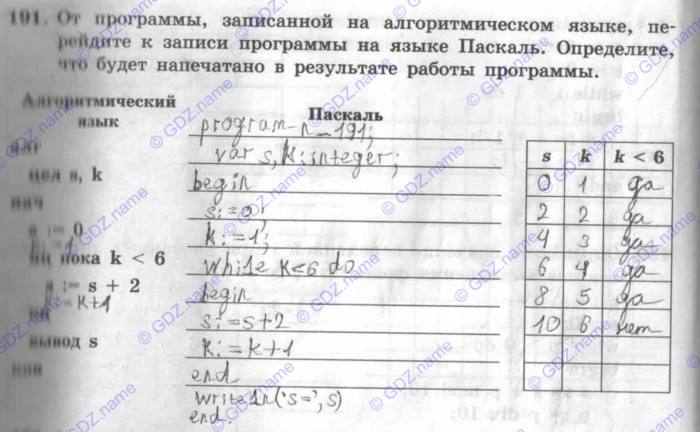 191. От программы, записанной на алгоритмическом языке, пе-
рейдите к записи программы на языке Паскаль. Определите,
что будет напечатано в результате работы программы.
Алгоритмический
язык
алг
цел s, k
нач
s := 0
k := 1
нц пока k < 6
s := s + 2
k := k+1
кц
вывод s
кон
Паскаль
program n_191;
var s, k: integer;
begin
s:=0;
k:=1;
while k<6 do
begin
s:=s+2
k:=k+1
end
writeln('s=', s)
end.
s k k < 6
0 1 да
2 2 да
4 3 да
6 4 да
8 5 да
10 6 нет
© GDZ.name